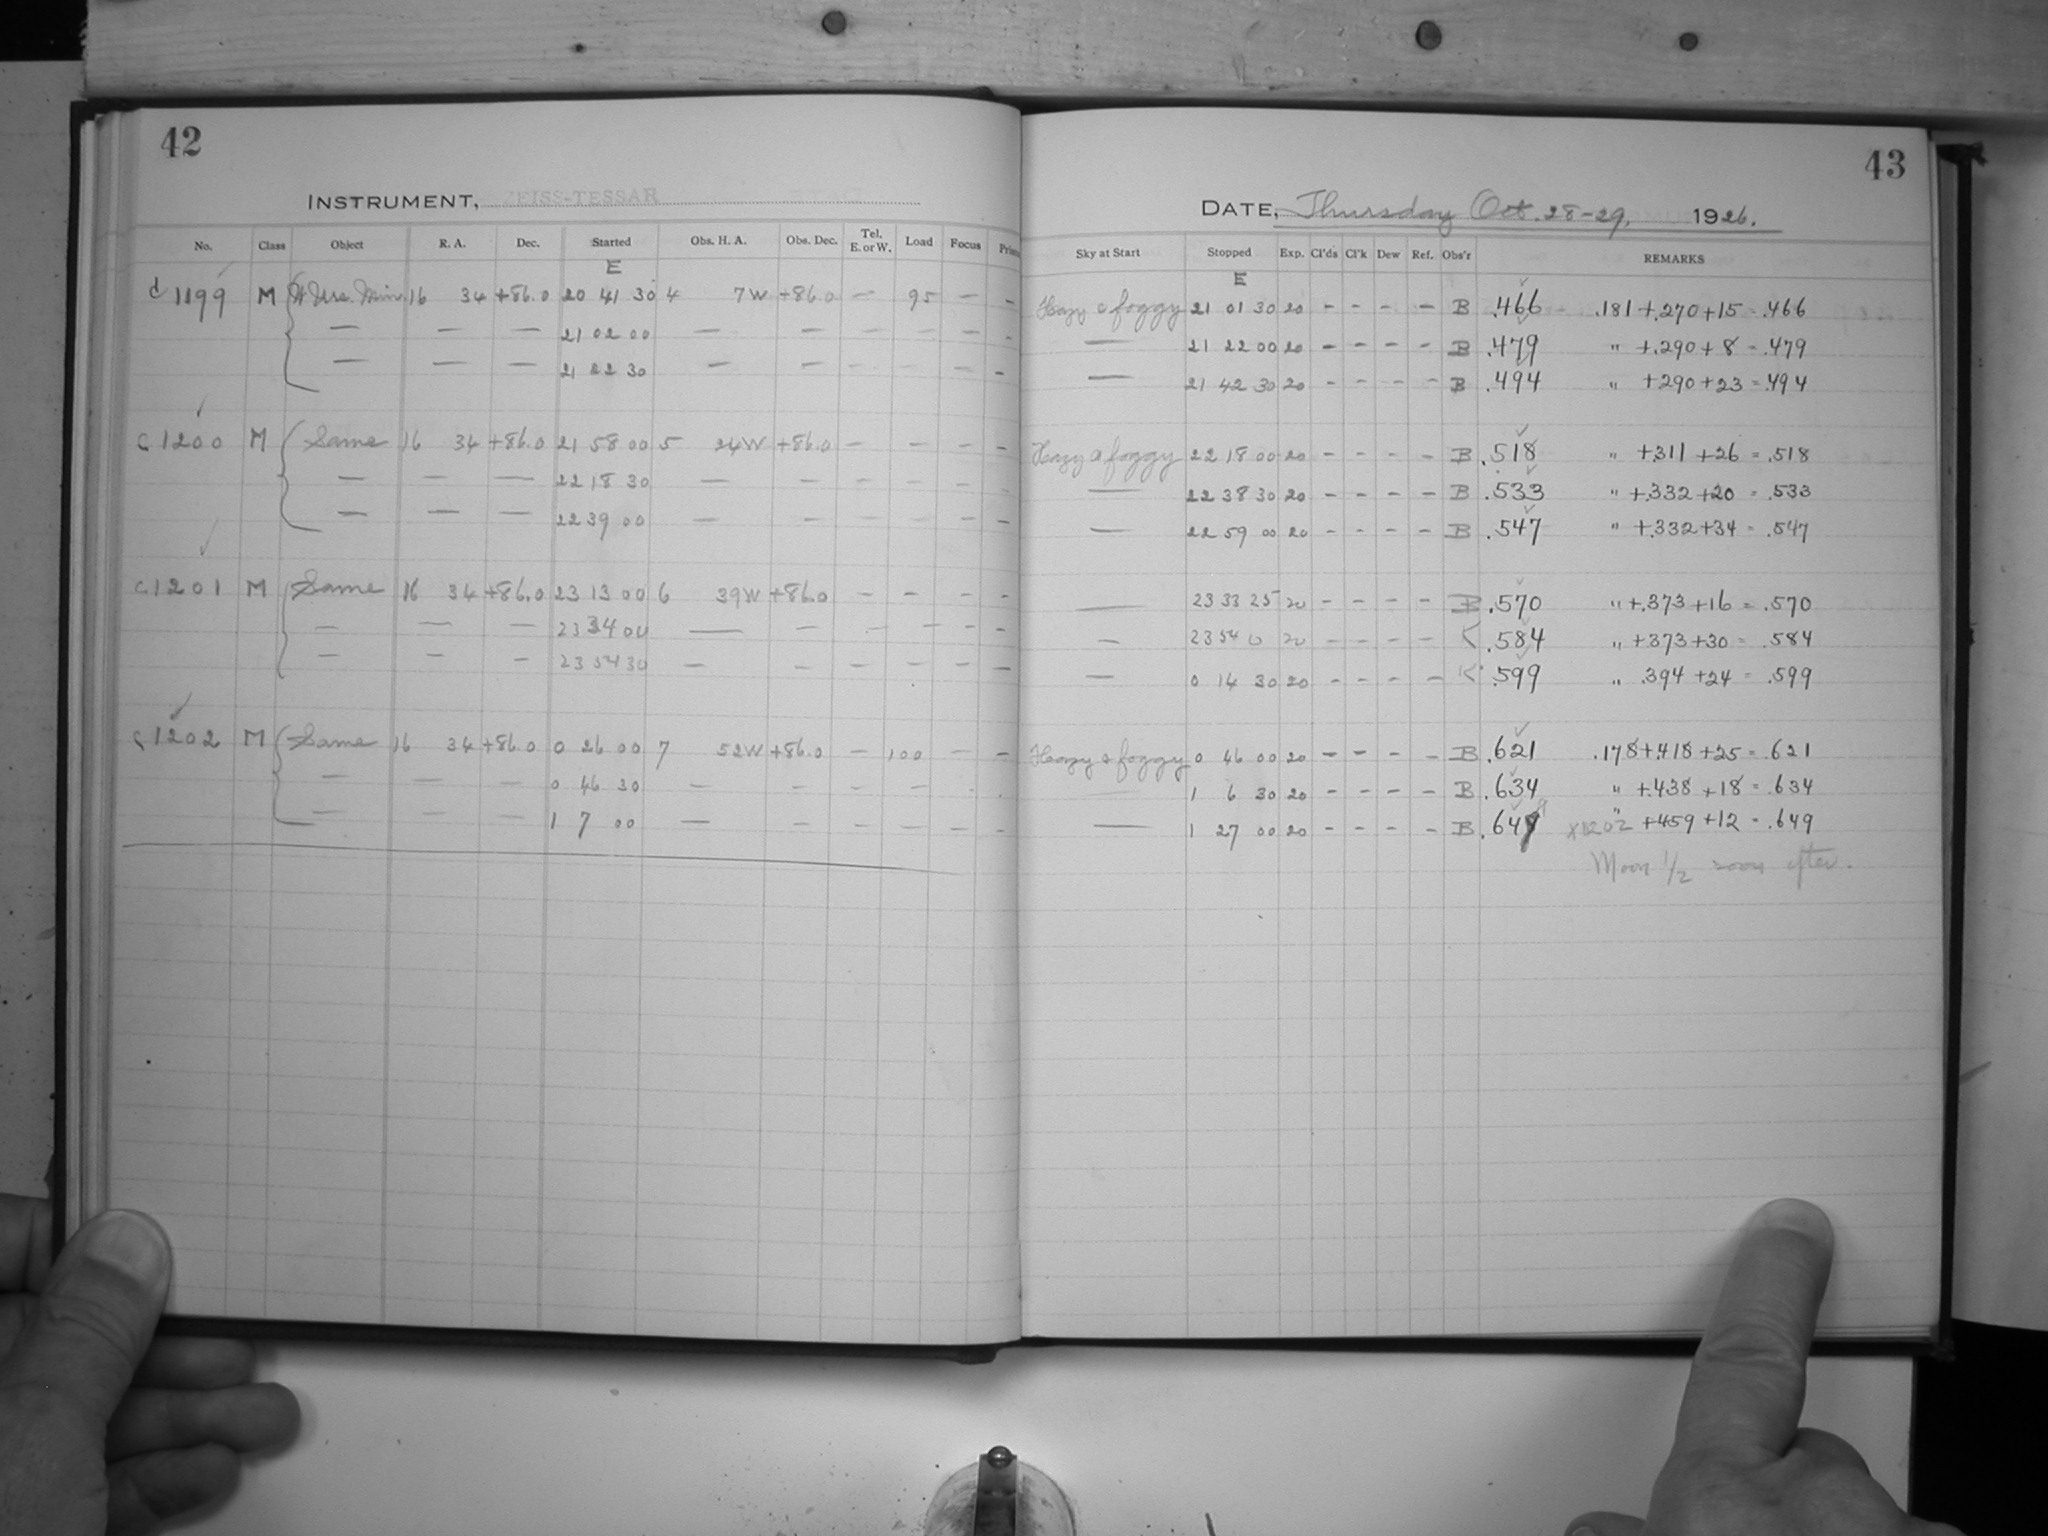 42
INSTRUMENT, ZEISS-TESSAR
No. Class Object R. A. Dec. Started Obs. H. A. Obs. Dec. Tel. E. or W. Load Focus
E
1199 M Urs. Min. 16 34 +86.0 20 41 30 4 7W +86.0 — 95 — –
— — — 21 02 00 — — — — — –
— — — 21 22 30 — — — — — –
c 1200 M Same 16 34 +86.0 21 58 00 5 24W +86.0 — — — –
— — — 22 18 30 — — — — — –
— — — 22 39 00 — — — — — –
c 1201 M Same 16 34 +86.0 23 13 00 6 39W +86.0 — — — –
— — — 23 34 00 — — — — — –
— — — 23 54 30 — — — — — –
c 1202 M Same 16 34 +86.0 0 26 00 7 52W +86.0 — 100 — –
— — — 0 46 30 — — — — — –
— — — 1 7 00 — — — — — –
43
DATE, Thursday Oct. 28-29, 1926.
Sky at Start Stopped Exp. Cl'ds Cl'k Dew Ref. Obs'r REMARKS
E
Hazy & foggy 21 01 30 20 – – – – B .466 .181 +.270 +15 = .466
— 21 22 00 20 – – – – B .479 " +.290 + 8 = .479
— 21 42 30 20 – – – – B .494 " +290 +23 = .494
Hazy & foggy 22 18 00 20 – – – – B .518 " +.311 +26 = .518
— 22 38 30 20 – – – – B .533 " +.332 +20 = .533
— 22 59 00 20 – – – – B .547 " +.332 +34 = .547
— 23 33 25 20 – – – – B .570 " +.373 +16 = .570
— 23 54 0 20 – – – – K .584 " +373 +30 = .584
— 0 14 30 20 – – – – K .599 " .394 +24 = .599
Hazy & foggy 0 46 00 20 – – – – B .621 .178 +.418 +25 = .621
1 6 30 20 – – – – B .634 " +.438 +18 = .634
— 1 27 00 20 – – – – B .649 " +459 +12 = .649
Moon 1/2 soon after.